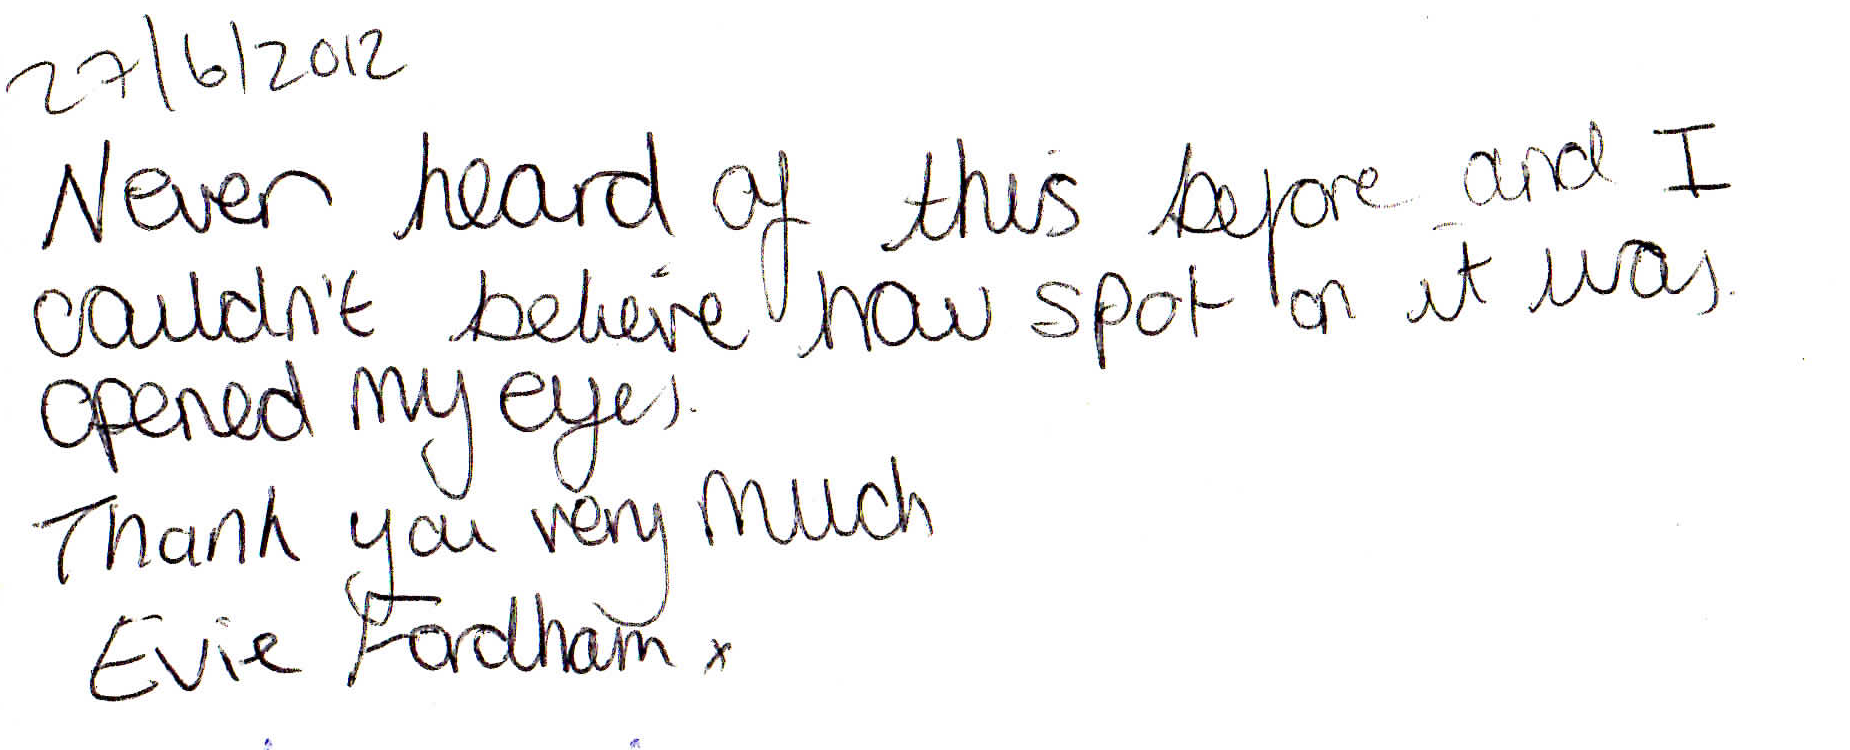 27/6/2012
Never heard of this before and I
couldn't believe how spot on it was.
opened my eyes.
Thank you very much
Evie Fordham x